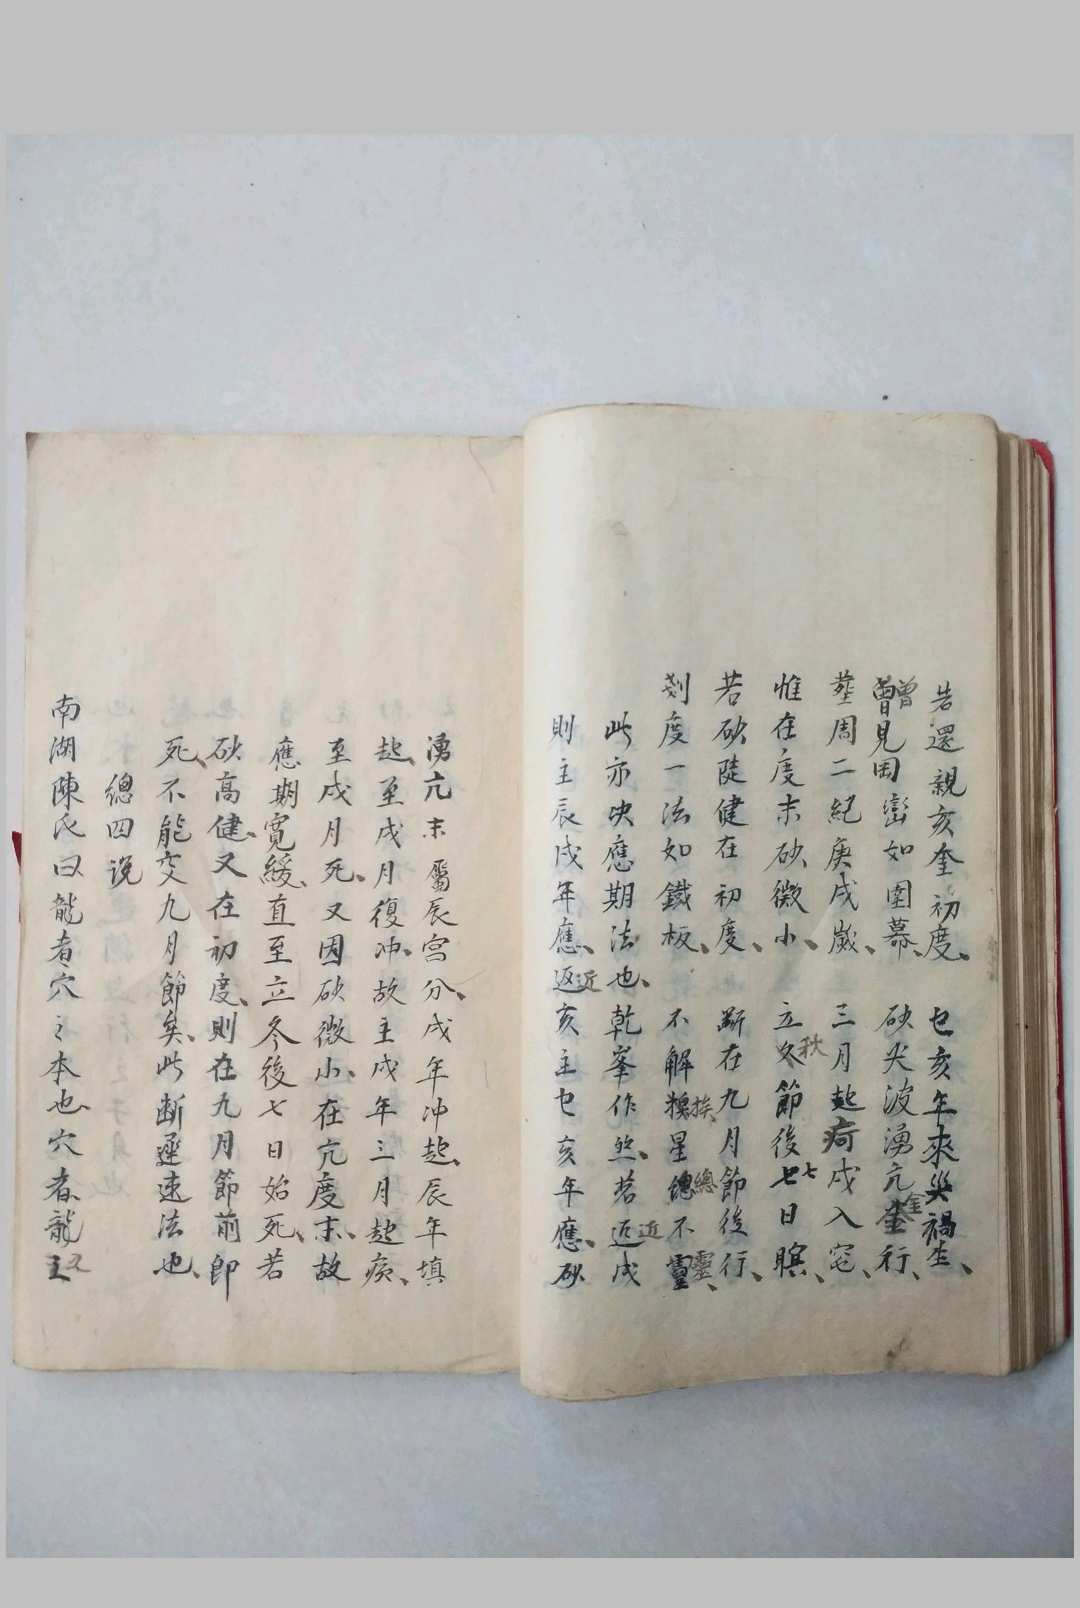 若還親亥奎初度、巳亥年來災禍生、
曾見田巒如圍幕、砂尖波湧亢金行、
塟周二紀庚戌歲、三月起疴戌入宅、
惟在度末砂微小、立冬節後七日瞑、
若砂陡健在初度、斷在九月節後行、
刻度一法如鐵板、不解挨星總不靈、
此亦决應期法也、乾峯作煞、若近戌
則主辰戌年應、近亥主巳亥年應、砂
湧亢末屬辰宮分、戌年冲起、辰年填
起、至戌月復冲、故主戌年三月起痾、
至戌月死、又因砂微小、在亢度末、故
應期寬緩、直至立冬後七日始死、若
砂高健、又在初度、則在九月節前即
死、不能交九月節矣、此断遲速法也、
總四说
南湖陳氏曰龍者穴之本也、穴者龍